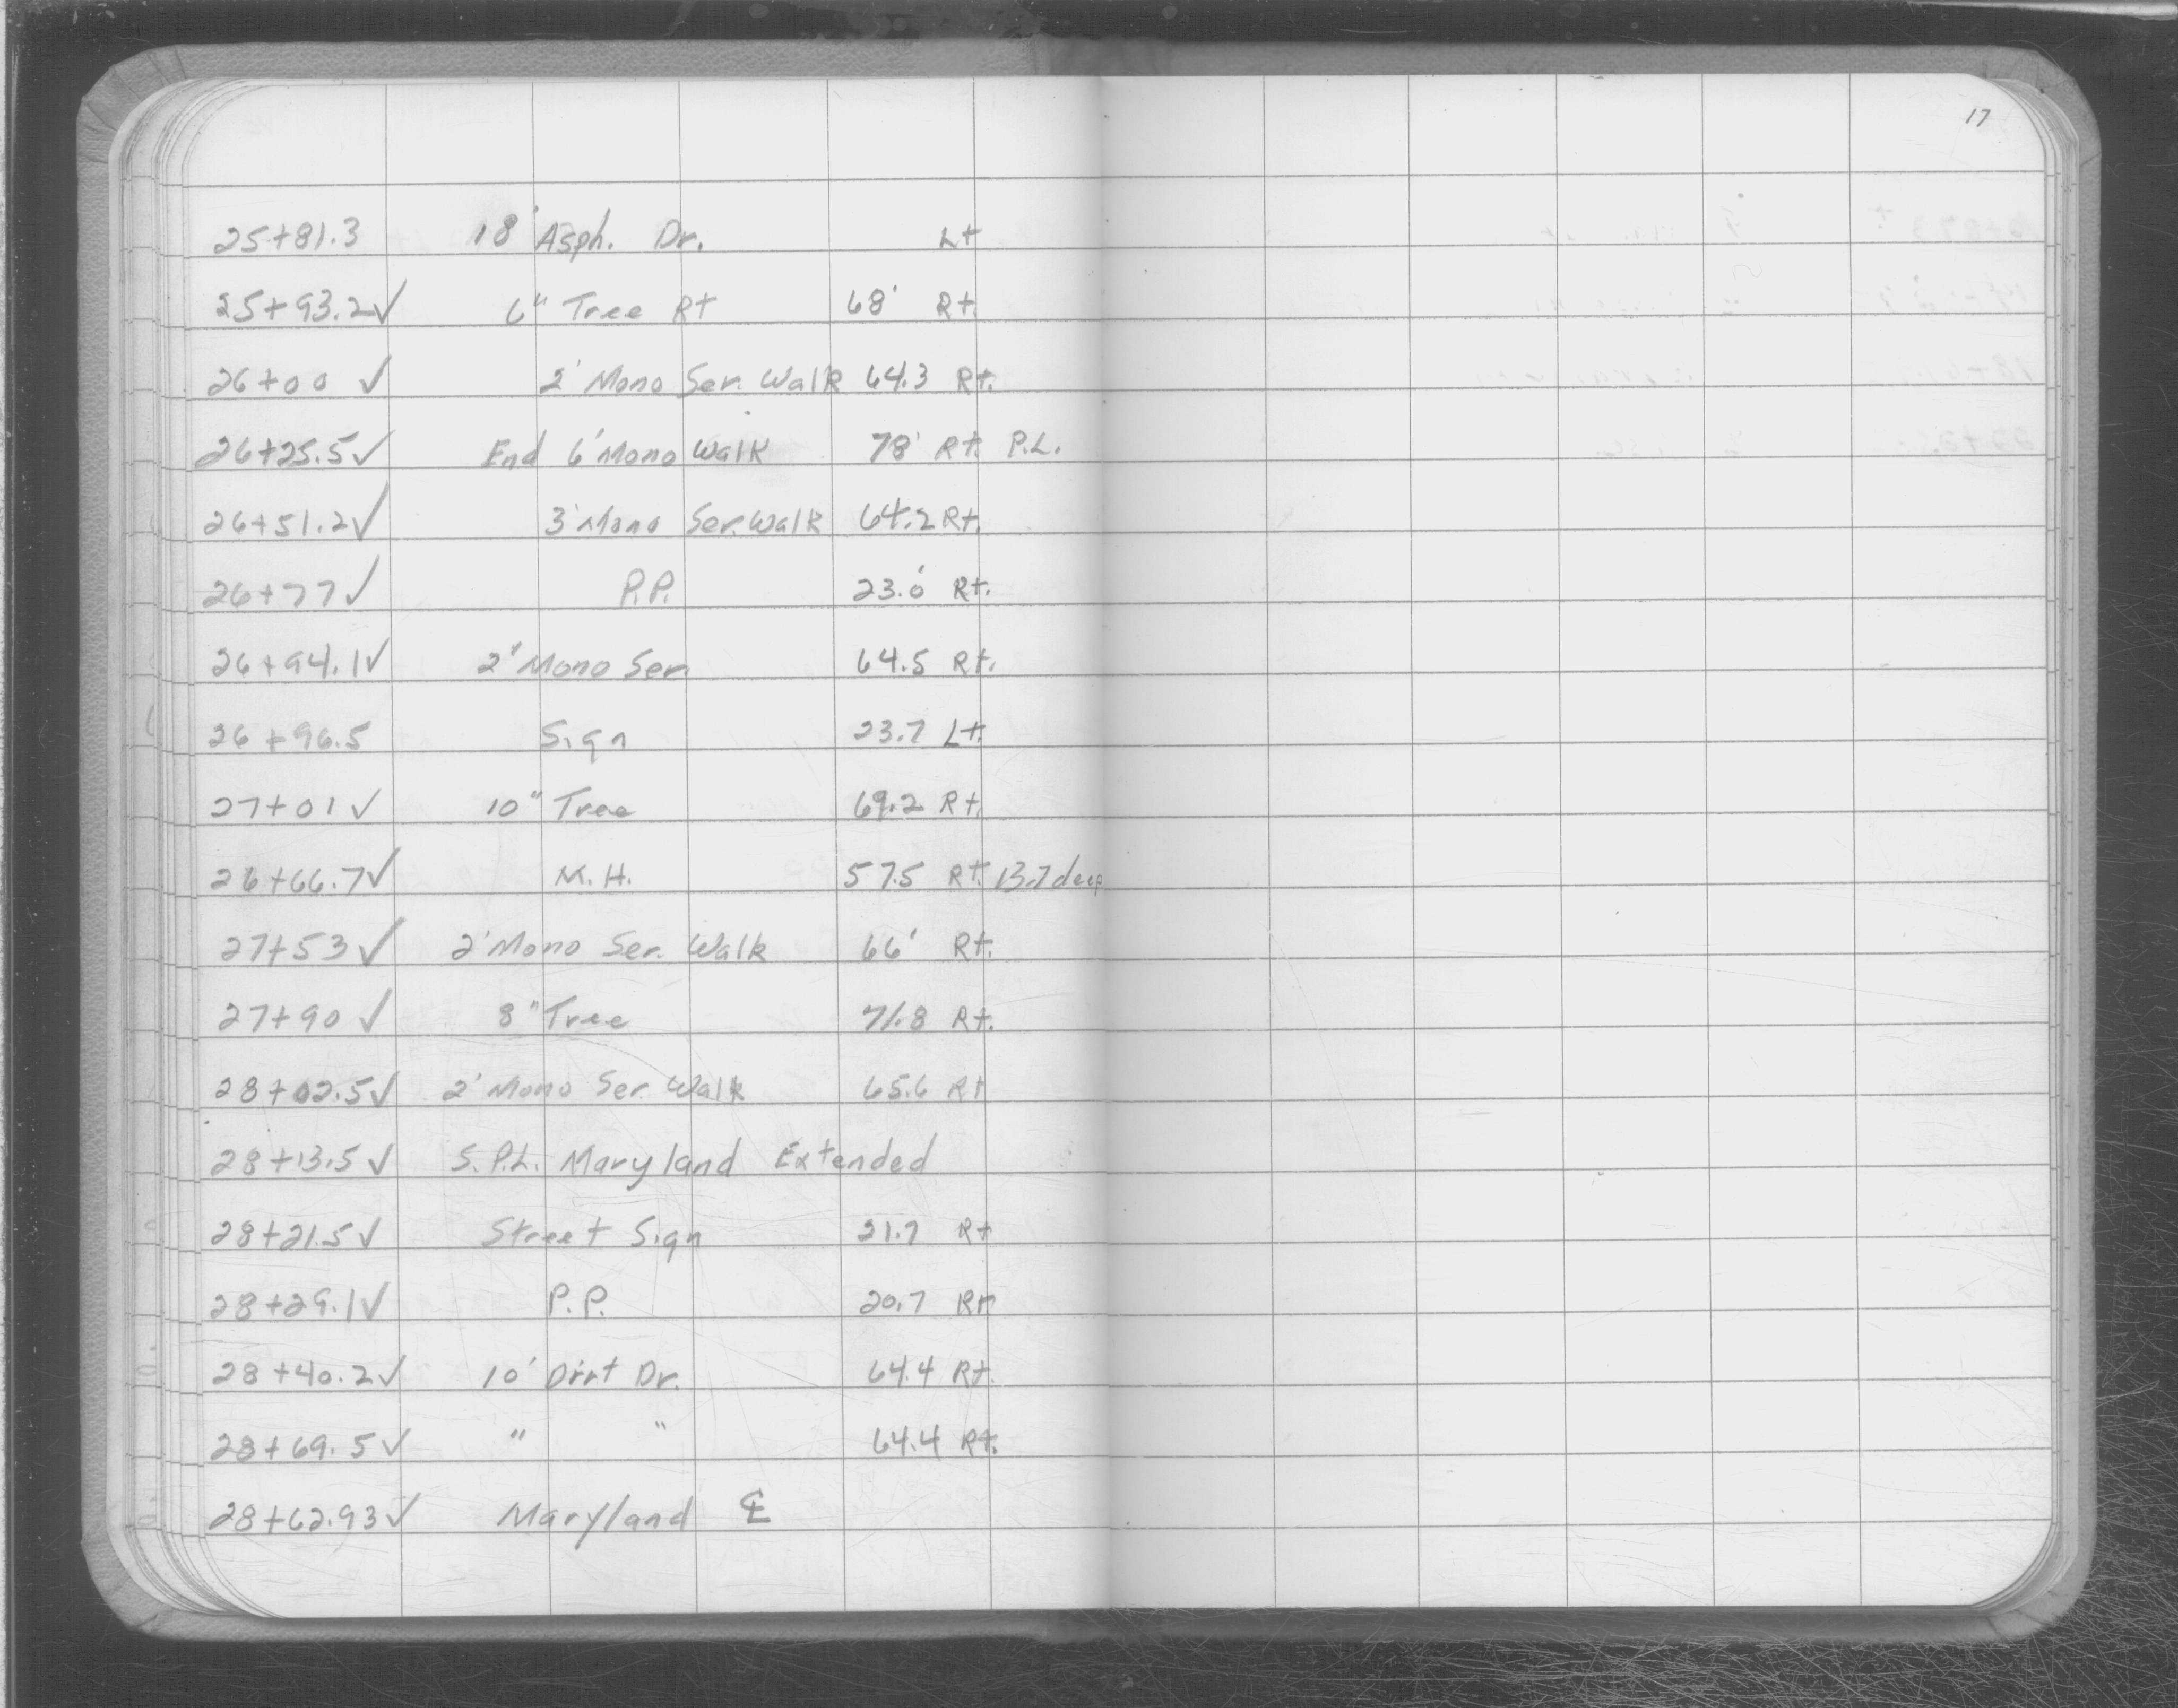 17
25+81.3 18' Asph. Dr. Lt
25+93.2✓ 6" Tree Rt 68' Rt.
26+00 ✓ 2' Mono Ser. Walk 64.3 Rt.
26+25.5✓ End 6' Mono Walk 78' Rt. P.L.
26+51.2✓ 3' Mono Ser. Walk 64.2 Rt.
26+77✓ P.P. 23.0' Rt.
26+94.1✓ 2' Mono Ser. 64.5 Rt.
26+96.5 Sign 23.7 Lt.
27+01✓ 10" Tree 69.2 Rt.
26+66.7✓ M.H. 57.5 Rt. 13.7 deep
27+53✓ 2' Mono Ser. Walk 66' Rt.
27+90 ✓ 8" Tree 71.8 Rt.
28+02.5✓ 2' Mono Ser. Walk 65.6 Rt
28+13.5✓ S.P.L. Maryland Extended
28+21.5✓ Street Sign 21.7 Rt
28+29.1✓ P.P. 20.7 Rt
28+40.2✓ 10' Dirt Dr. 64.4 Rt.
28+69.5✓ " " 64.4 Rt.
28+62.93✓ Maryland ℄